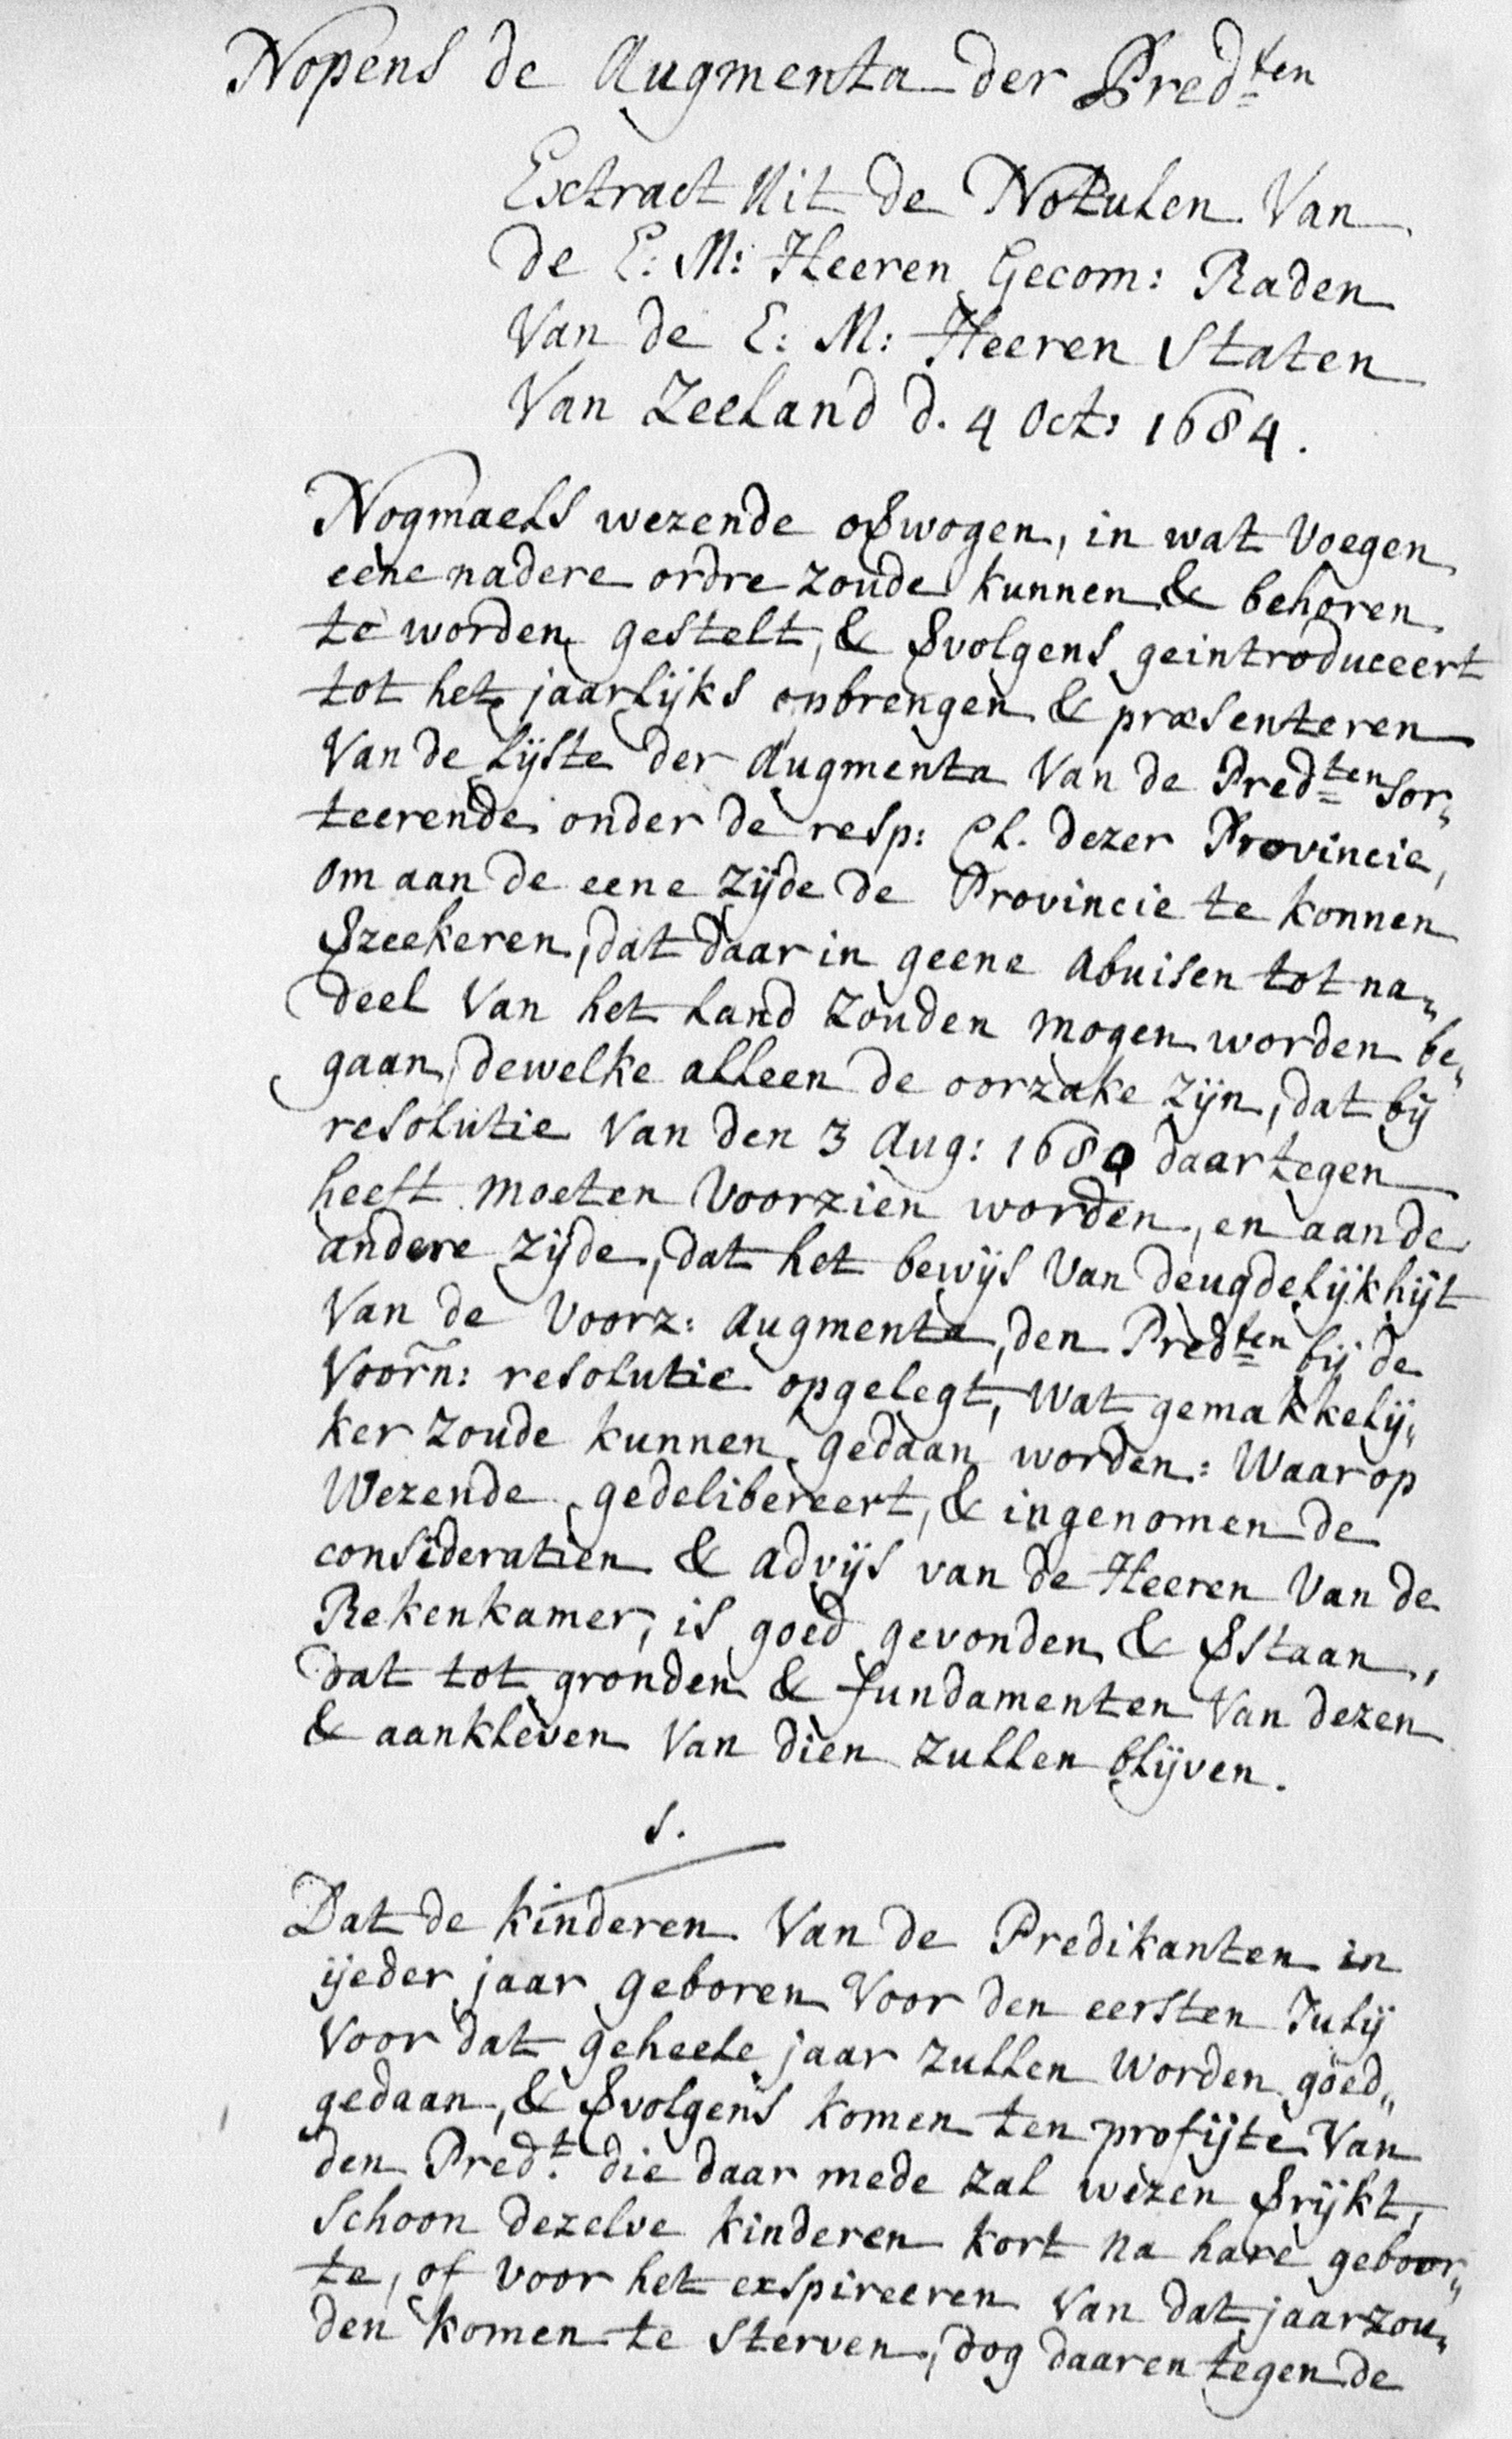 Nopens de Augmenta der Pred=ten
Extract Uit de Notulen Van
de E: M: Heeren Gecom: Raden
Van de E: M: Heeren Staten
Van Zeeland d. 4 Oct: 1684.
Nogmaels wezende oßwogen, in wat Voegen
eene nadere ordre zoude kunnen & behoren
te worden gestelt, & ßvolgens geintroduceert
tot het jaarlijks opbrengen & præsenteren
Van de Lijste der Augmenta Van de Pred=ten sor„
teerende onder de resp: Cl. dezer Provincie,
om aan de eene zijde de Provincie te konnen
ßzeekeren, dat daar in geene abuisen tot na„
deel Van het Land zouden mogen worden be„
gaan, dewelke alleen de oorzake zijn, dat bij
resolutie Van den 3 Aug: 1680 daar tegen
heeft moeten Voorzien worden, en aan de
andere zijde, dat het bewijs Van deugdelijkhijt
Van de Voorz: Augmenta, den Pred=ten bij de
Voorn: resolutie opgelegt, Wat gemakkelij„
ker zoude kunnen gedaan worden: Waar op
Wezende gedelibereert, & ingenomen de
consideratien & advijs van de Heeren Van de
Rekenkamer, is goed gevonden & ßstaan,
dat tot gronden & fundamenten Van dezen
& aankleven Van dien zullen blijven.
1.
Dat de kinderen Van de Predikanten in
ijeder jaar geboren Voor den eersten Julij
Voor dat geheele jaar zullen Worden goed„
gedaan, & ßvolgens komen ten profijte Van
den Pred.t die daar mede zal wezen ßrijkt,
Schoon dezelve kinderen kort na hare geboor„
te, of voor het exspireeren Van dat jaar zou„
den komen te Sterven, dog daaren tegen de